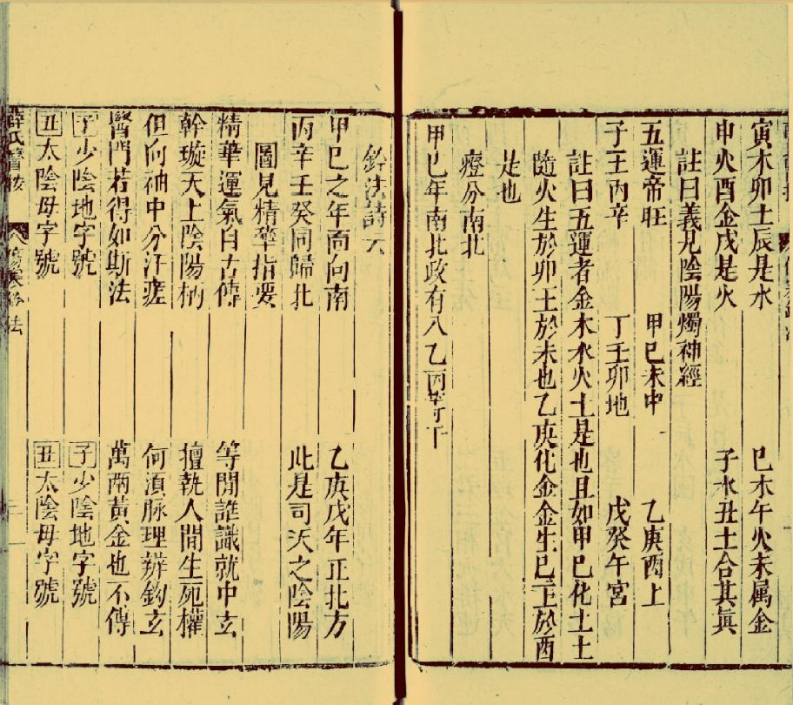 寅木卯土辰是水　巳木午火未属金
申火酉金戌是火　子水丑土合其眞
註曰義見陰陽燭神經
五運帝旺　甲巳未中　乙庚酉上
子王丙辛　丁壬卯地　戊癸午宮
註曰五運者金木水火土是也且如甲巳化土土
隨火生於卯王於未也乙庚化金金生巳王於酉
是也
瘞分南北
甲巳年南北政有八乙丙
鈐法詩六
甲巳之年面向南　乙庚戊年正北方
丙辛壬癸同歸北　此是司天之陰陽
圖見精華指要
精華運氣自古傳　等閒誰識就中玄
幹璇天上陰陽柄　擅執人間生死權
但向袖中分汗瘥　何須脉理辨鈎玄
醫門若得如斯法　萬兩黃金也不傳
子少陰地字號　子少陰地字號
丑太陰母字號　丑太陰母字號
薛氏醫按